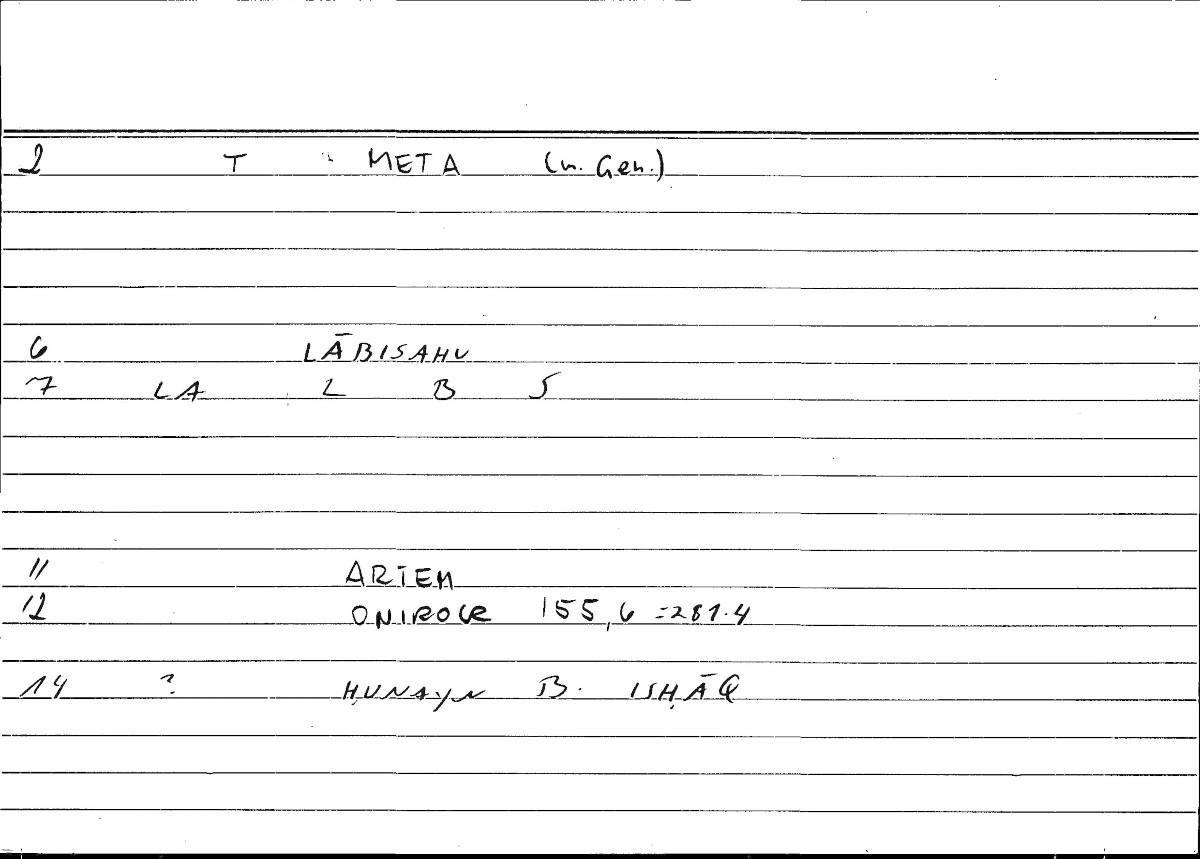 2 T META (n. Gen.)
6 LĀBISAHU
7 LA L B S
11 ARTEM
12 ONIROCR 155,6 = 281.4
14 ? ḤUNAYN B. ISḤĀQ